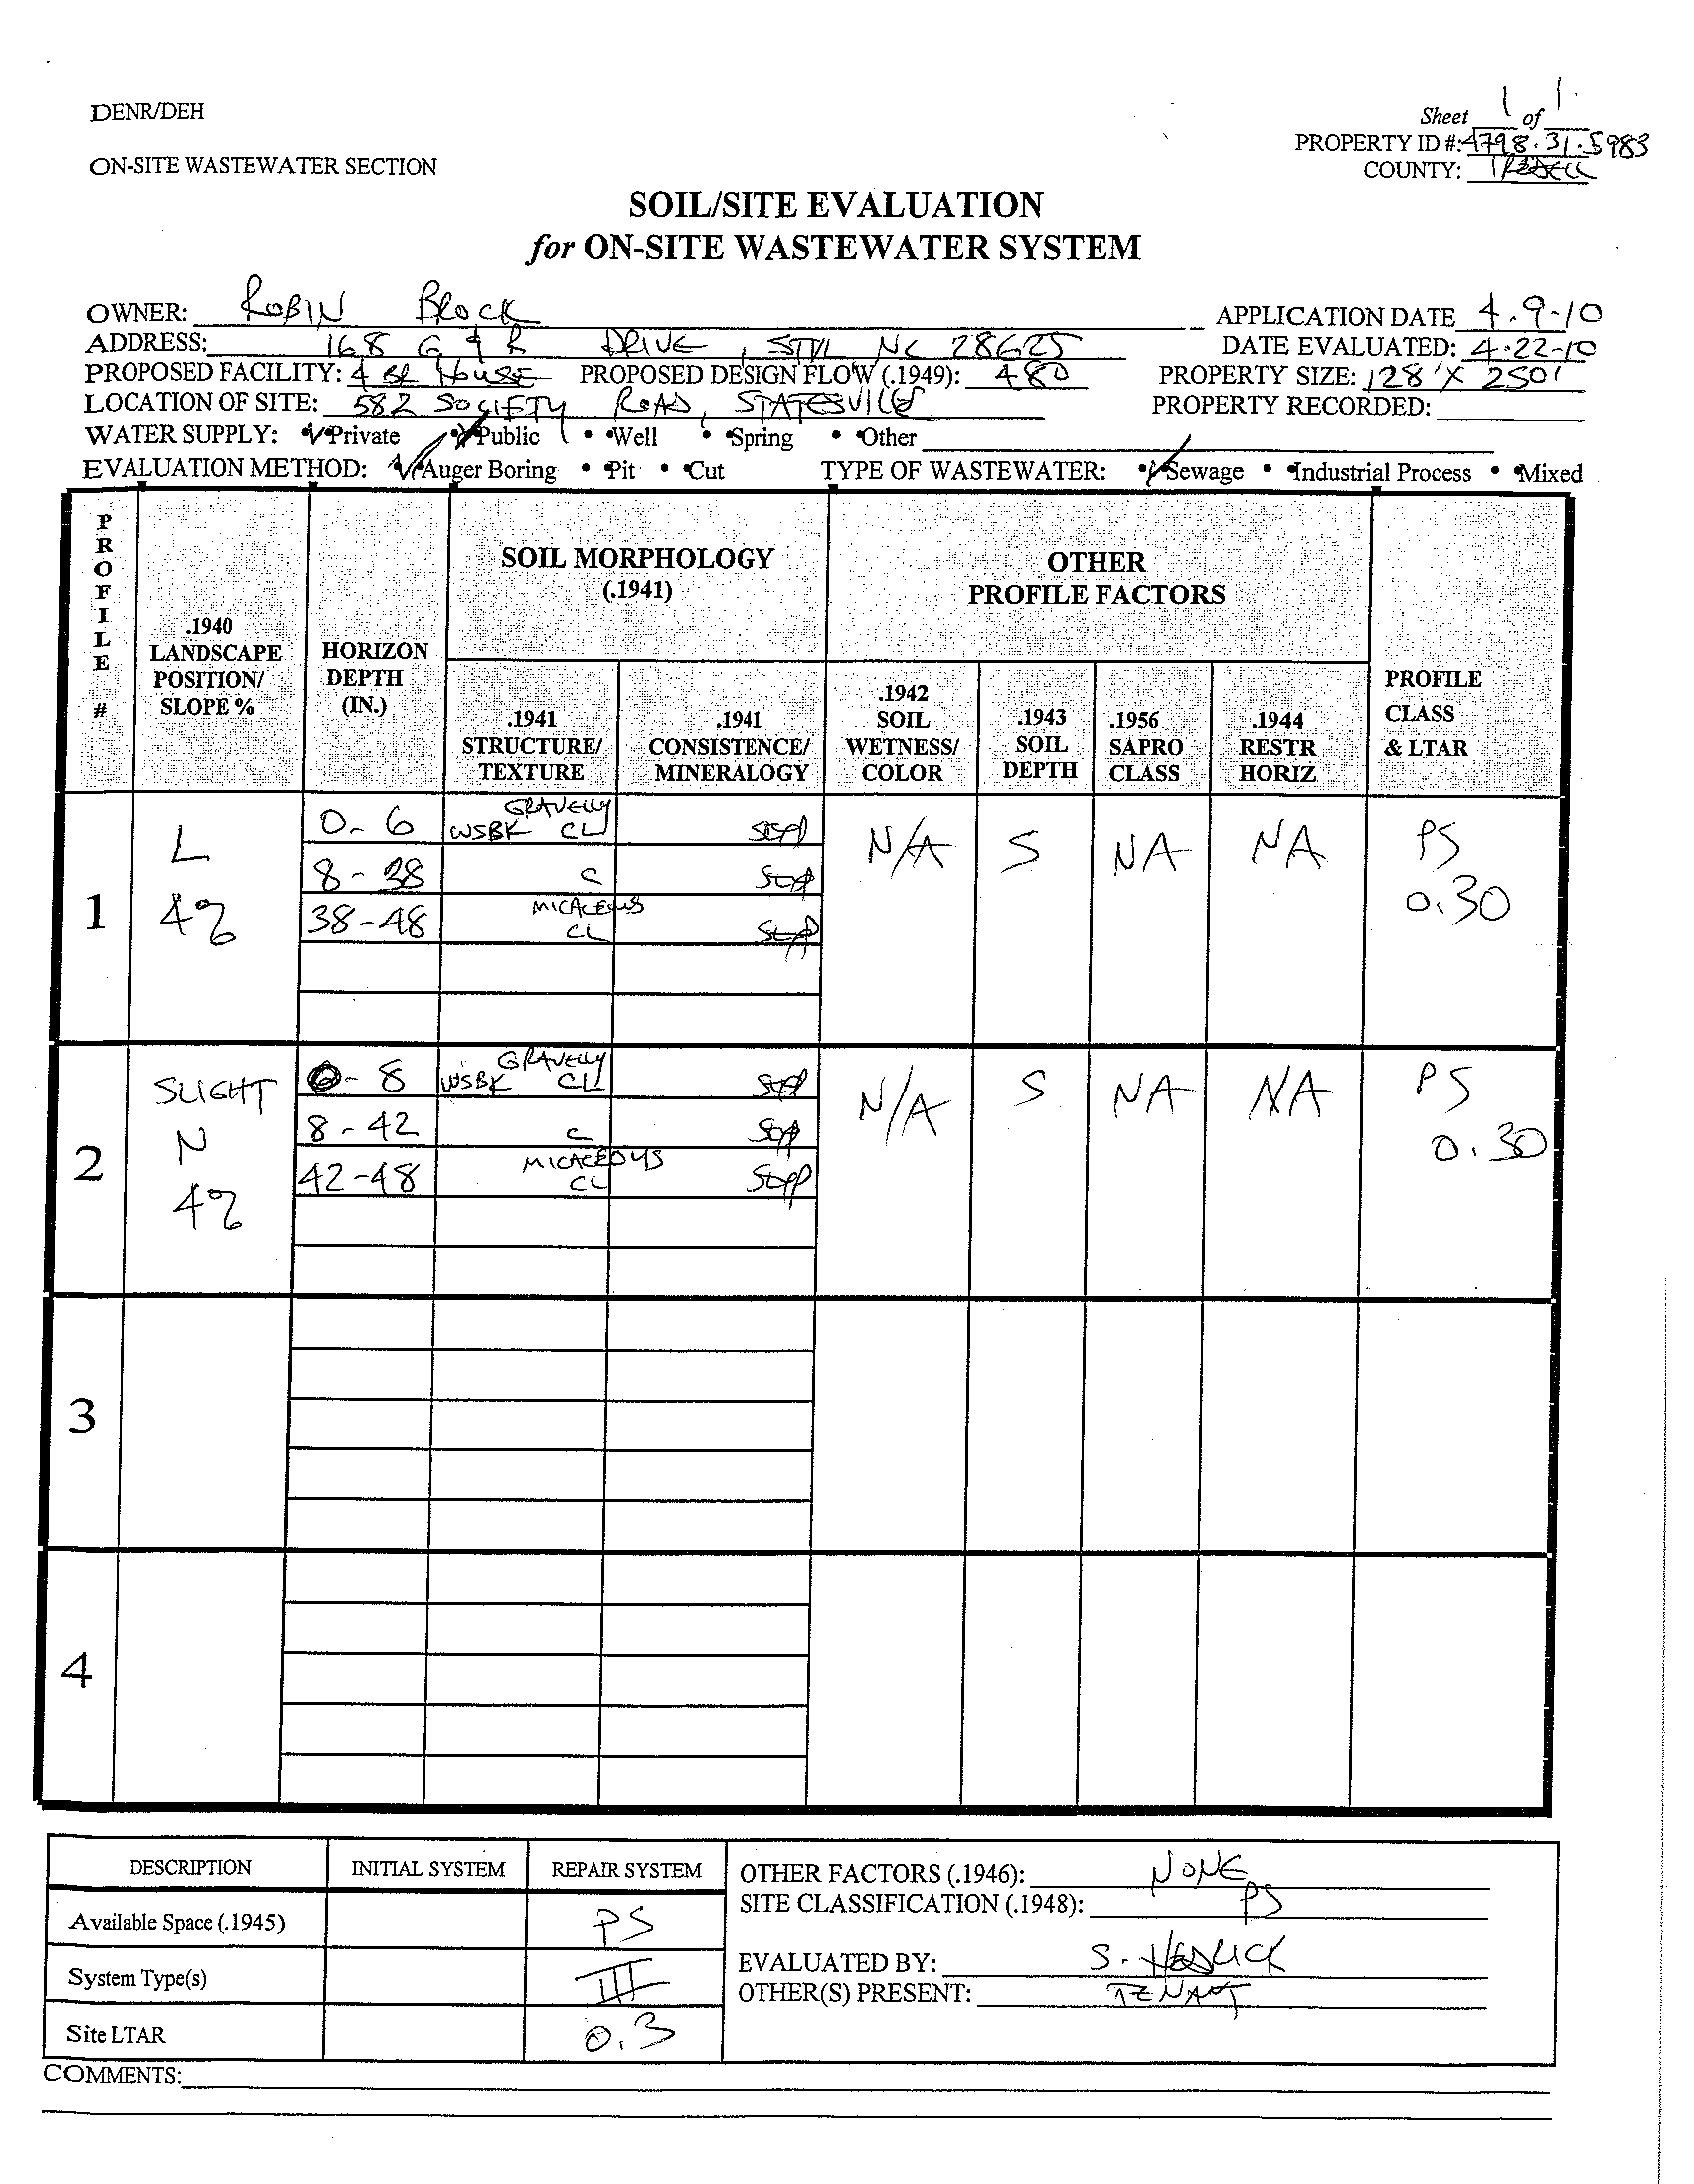 Sheet 1 of 1
DENR/DEH
PROPERTY ID #: 4798.31.5983
ON-SITE WASTEWATER SECTION
COUNTY: IREDELL
SOIL/SITE EVALUATION
for ON-SITE WASTEWATER SYSTEM
OWNER: ROBIN BLOCK APPLICATION DATE 4.9-10
ADDRESS: 168 G & R DRIVE, STVL NC 28625 DATE EVALUATED: 4-22-10
PROPOSED FACILITY: 4 BR HOUSE PROPOSED DESIGN FLOW (.1949): 480 PROPERTY SIZE: 128' X 250'
LOCATION OF SITE: 582 SOCIETY ROAD, STATESVILLE PROPERTY RECORDED:
WATER SUPPLY: Private Public Well Spring Other
EVALUATION METHOD: Auger Boring Pit Cut TYPE OF WASTEWATER: Sewage Industrial Process Mixed
PROFILE #
.1940
LANDSCAPE
POSITION/
SLOPE %
HORIZON
DEPTH
(IN.)
SOIL MORPHOLOGY
(.1941)
.1941
STRUCTURE/
TEXTURE
.1941
CONSISTENCE/
MINERALOGY
OTHER
PROFILE FACTORS
.1942
SOIL
WETNESS/
COLOR
.1943
SOIL
DEPTH
.1956
SAPRO
CLASS
.1944
RESTR
HORIZ
PROFILE
CLASS
& LTAR
1
L
4%
0-6 WSBK GRAVELLY CL
8-38 C
38-48 MICACEOUS CL
N/A S NA NA PS
0.30
2
SLIGHT
N
4%
0-8 WSBK GRAVELLY CL
8-42 C
42-48 MICACEOUS CL
N/A S NA NA PS
0.30
3
4
DESCRIPTION INITIAL SYSTEM REPAIR SYSTEM
Available Space (.1945) PS
System Type(s) III
Site LTAR 0.3
OTHER FACTORS (.1946): NONE
SITE CLASSIFICATION (.1948): PS
EVALUATED BY: S.
OTHER(S) PRESENT: TENANT
COMMENTS: